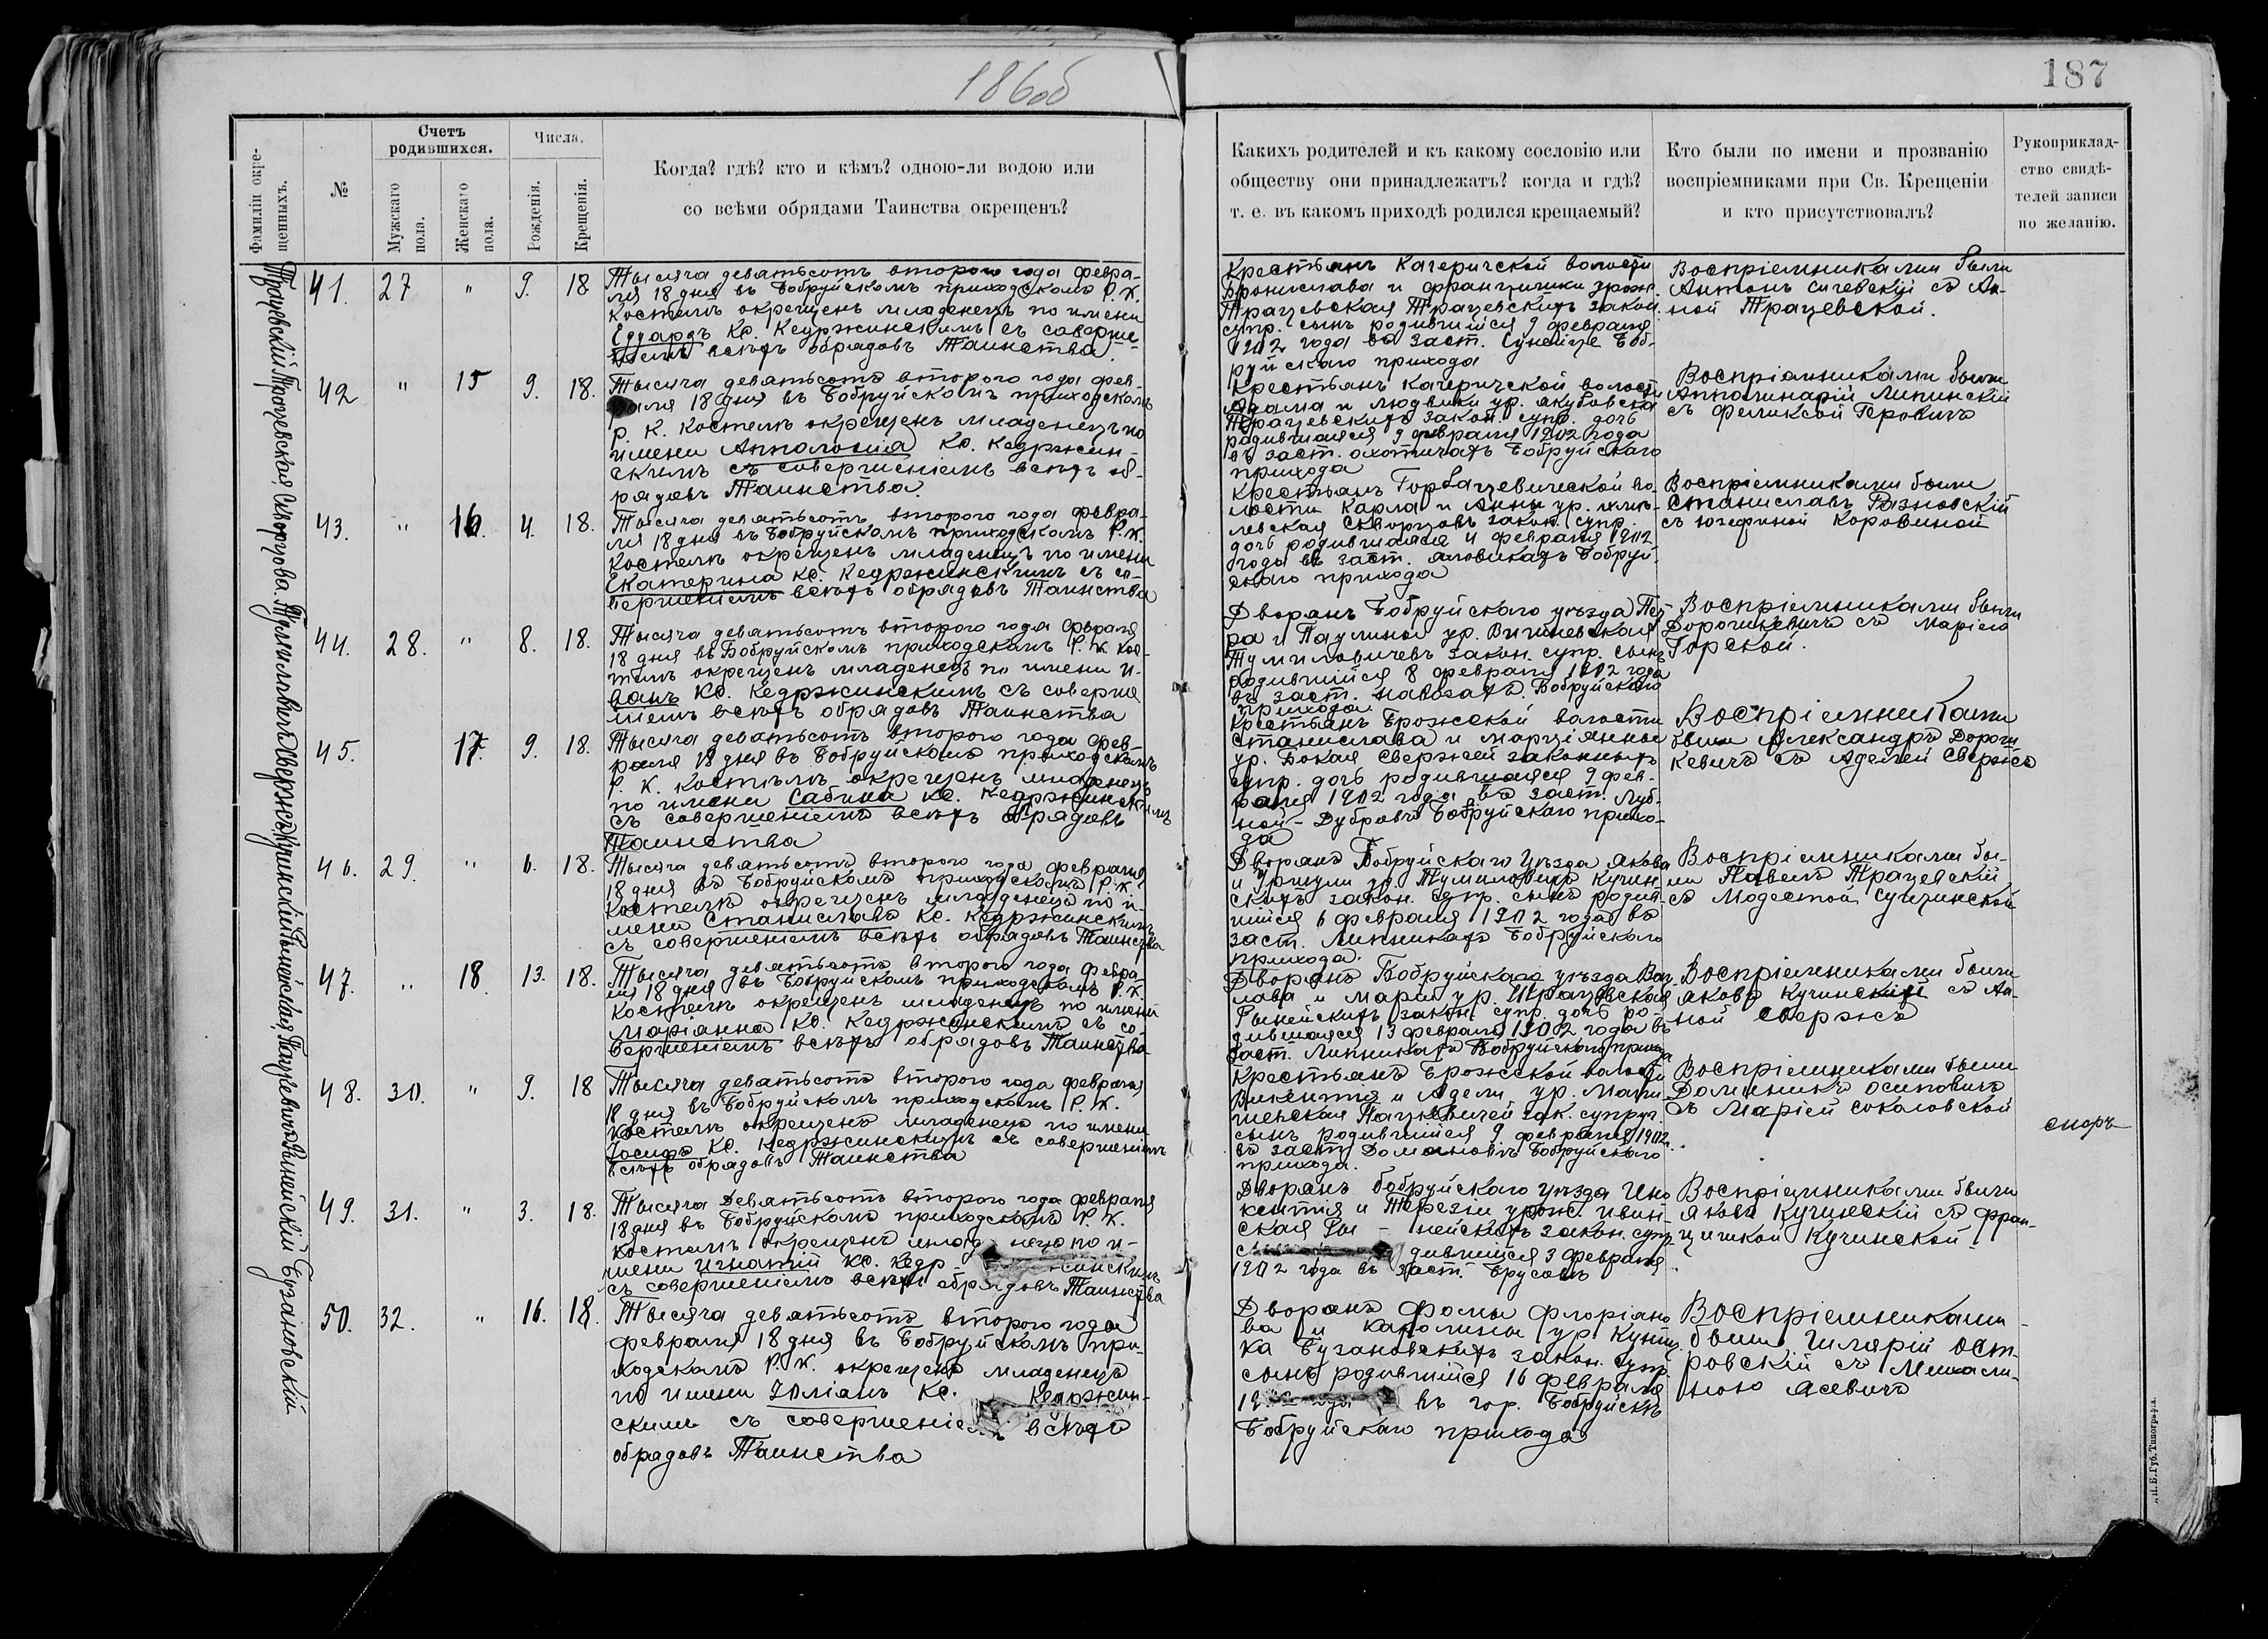 186об
187
Фамиліи окре-
щенныхъ.
№
Счетъ
родившихся.
Мужскаго
пола.
Женскаго
пола.
Числа.
Рожденія.
Крещенія.
Когда? гдѣ? кто и кѣмъ? одною-ли водою или
со всѣми обрядами Таинства окрещенъ?
Какихъ родителей и къ какому сословію или
обществу они принадлежатъ? когда и гдѣ?
т. е. въ какомъ приходѣ родился крещаемый?
Кто были по имени и прозванію
воспріемниками при Св. Крещеніи
и кто присутствовалъ?
Рукоприклад-
ство свидѣ-
телей записи
по желанію.
Трацевскій Трацевская Скворцова Тумиловичъ Свержъ Кучинскій Рынейская Пацкевичъ Рынейскій Бузановскій
41. 27 " 9. 18
Тысяча девятьсотъ второго года февра-
ля 18 дня въ Бобруйскомъ приходскомъ Р. К.
костелѣ окрещенъ младенецъ по имени
Едуардъ Кс. Кедржинскимъ съ соверше-
ніемъ всѣхъ обрядовъ Таинства.
Крестьянъ Качеричской волости
Бронислава и Францишки урож.
Трацевская Трацевскихъ закон.
супр. сынъ родившійся 9 февраля
1902 года въ заст. Сунейце Боб-
руйскаго прихода
Воспріемниками были
Антонъ Сичевскій съ Ан-
ной Трацевской.
42 " 15 9. 18.
Тысяча девятьсотъ второго года фев-
раля 18 дня въ Бобруйскомъ приходскомъ
Р. К. костелѣ окрещенъ младенецъ по
имени Апполонія Кс. Кедржин-
скимъ съ совершеніемъ всѣхъ об-
рядовъ Таинства.
Крестьянъ Качеричской волости
Адама и Людвики ур. Якубовска
Трацевскихъ закон. супр. дочь
родившаяся 9 февраля 1902 года
въ заст. Охотичахъ Бобруйскаго
прихода
Воспріемниками были
Апполинарій Липинскій
съ Феликсой Геровичъ
43. " 16. 4. 18.
Тысяча девятьсотъ второго года февра-
ля 18 дня въ Бобруйскомъ приходскомъ Р. К.
костелѣ окрещенъ младенецъ по имени
Екатерина Кс. Кедржинскимъ съ со-
вершеніемъ всѣхъ обрядовъ Таинства
Крестьянъ Горбацевической во-
лости Карла и Анны ур.
Скворцовъ закон. супр.
дочь родившаяся 4 февраля 1902
года въ заст. Бобруй-
скаго прихода
Воспріемниками были
Станиславъ Разновскій
съ Юзефиной Коровиной
44. 28. " 8. 18.
Тысяча девятьсотъ второго года февраля
18 дня въ Бобруйскомъ приходскомъ Р. К. кос-
телѣ окрещенъ младенецъ по имени И-
ванъ Кс. Кедржинскимъ съ соверше
ніемъ всѣхъ обрядовъ Таинства
Дворянъ Бобруйскаго уѣзда Пет
ра и Паулины ур. Вишневская
Тумиловичевъ закон. супр. сынъ
родившійся 8 февраля 1902 года
въ заст. Бобруйскаго
прихода.
Воспріемниками были
Дорошкевичъ съ Маріею
Горской.
45. 17. 9. 18.
Тысяча девятьсотъ второго года фев-
раля 18 дня въ Бобруйскомъ приходскомъ
Р. К. костелѣ окрещенъ младенецъ
по имени Сабина Кс. Кедржинскимъ
съ совершеніемъ всѣхъ обрядовъ
Таинства
Крестьянъ Брожской волости
Станислава и Марціянны
ур. Бокая Свержей законныхъ
супр. дочь родившаяся 9 фев-
раля 1902 года въ заст. Луб-
ной-Дубровѣ Бобруйскаго прихо-
да
Воспріемниками
были Александръ Дорош
кевичъ съ Аделей Свержъ
46. 29. " 6. 18.
Тысяча девятьсотъ второго года февраля
18 дня въ Бобруйскомъ приходскомъ Р. К.
костелѣ окрещенъ младенецъ по и-
мени Станиславъ Кс. Кедржинскимъ
съ совершеніемъ всѣхъ обрядовъ Таинства
Дворянъ Бобруйскаго уѣзда Якова
и Уршули ур. Тумиловичъ Кучин-
скихъ закон. супр. сынъ родив-
шійся 6 февраля 1902 года въ
заст. Липникахъ Бобруйскаго
прихода.
Воспріемниками бы-
ли Павелъ Трацевскій
съ Модестой Сущинской
47. " 18. 13. 18.
Тысяча девятьсотъ второго года февра-
ля 18 дня въ Бобруйскомъ приходскомъ Р. К.
костелѣ окрещенъ младенецъ по имени
Маріанна Кс. Кедржинскимъ съ со-
вершеніемъ всѣхъ обрядовъ Таинства
Дворянъ Бобруйскаго уѣзда Вац-
лава и Маріи ур. Трацевская
Рынейскихъ закон. супр. дочь ро-
дившаяся 13 февраля 1902 года въ
заст. Липникахъ Бобруйскаго прихода
Воспріемниками были
Яковъ Кучинскій съ Ан-
ной Свержъ
48. 30. " 9. 18
Тысяча девятьсотъ второго года февраля
18 дня въ Бобруйскомъ приходскомъ Р. К.
костелѣ окрещенъ младенецъ по имени
Іосифъ Кс. Кедржинскимъ съ совершеніемъ
всѣхъ обрядовъ Таинства
Крестьянъ Брожской волости
Викентія и Адели ур. Маты
шевская Пацкевичей зак. супруг.
сынъ родившійся 9 февраля 1902
въ заст. Домановѣ Бобруйскаго
прихода.
Воспріемниками были
Доминикъ Осиповичъ
съ Маріей Соколовской
49. 31. " 3. 18.
Тысяча Девятьсотъ второго года февраля
18 дня въ Бобруйскомъ приходскомъ Р. К.
костелѣ окрещенъ младенецъ по и-
мени Игнатій Кс. Кедржинскимъ
съ совершеніемъ всѣхъ обрядовъ Таинства
Дворянъ Бобруйскаго уѣзда Ино
кентія и Терезіи урож. Ивин-
ская Ры-нейскихъ закон. супр
дившійся 3 февраля
1902 года въ заст. Брусахъ
Воспріемниками были
Яковъ Кучинскій съ Фран-
цишкой Кучинской
50. 32. " 16. 18.
Тысяча девятьсотъ второго года
февраля 18 дня въ Бобруйскомъ при-
ходскомъ Р. К. окрещенъ младенецъ
по имени Юліанъ Кс. Кедржин-
скимъ съ совершеніемъ всѣхъ
обрядовъ Таинства
Дворянъ Фомы Флоріано
ва и Каролины ур Куниц
ка Бузановскихъ закон. супр
сынъ родившійся 16 февраля
года въ гор. Бобруйскѣ
Бобруйскаго прихода
Воспріемниками
были Гилярій Ост-
ровскій съ Михали-
ною Ясевичъ
Губ. Типографія.